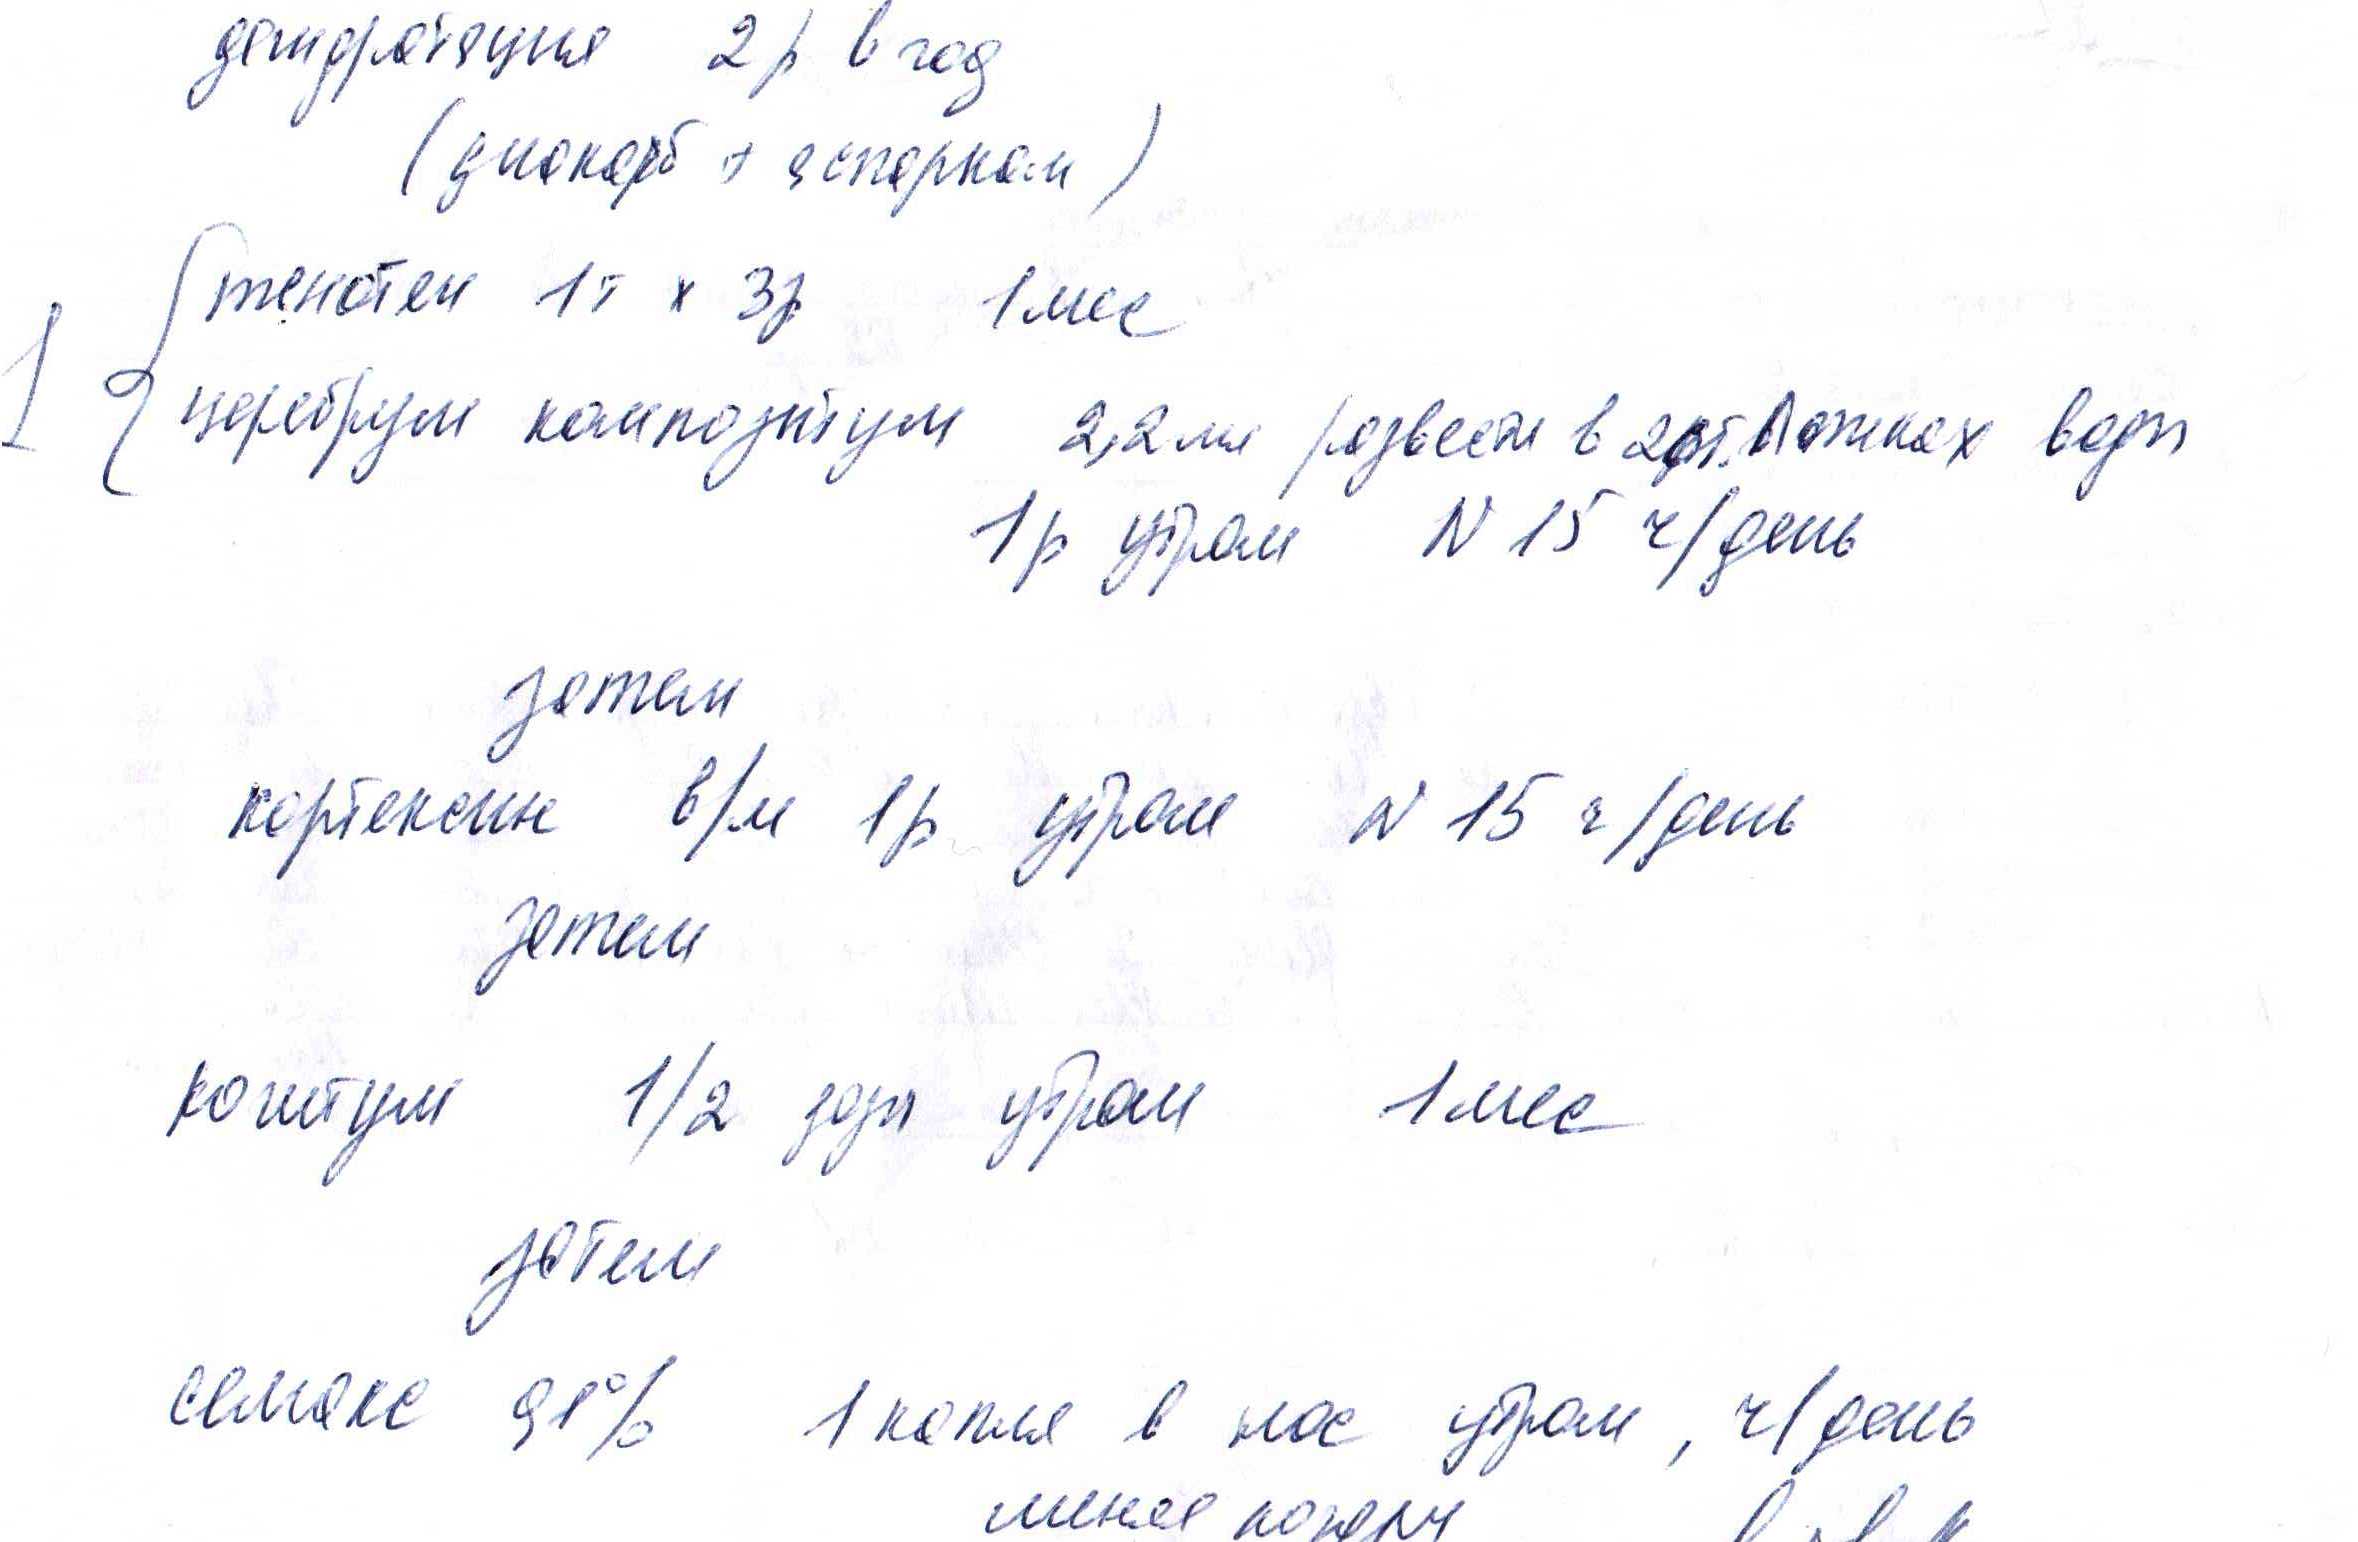 дегидратация 2р в год
(диакарб + аспаркам)
тенотен 1т х 3р 1 мес
1 церебрум композитум 2,2 мл развести в 2 ст. ложках воды
1р утром N 15 ч/день
затем
кортексин в/м 1р утром N 15 ч/день
затем
когитум 1/2 дозы утром 1 мес
затем
семакс 0,1% 1 капля в нос утром, ч/день
меняя